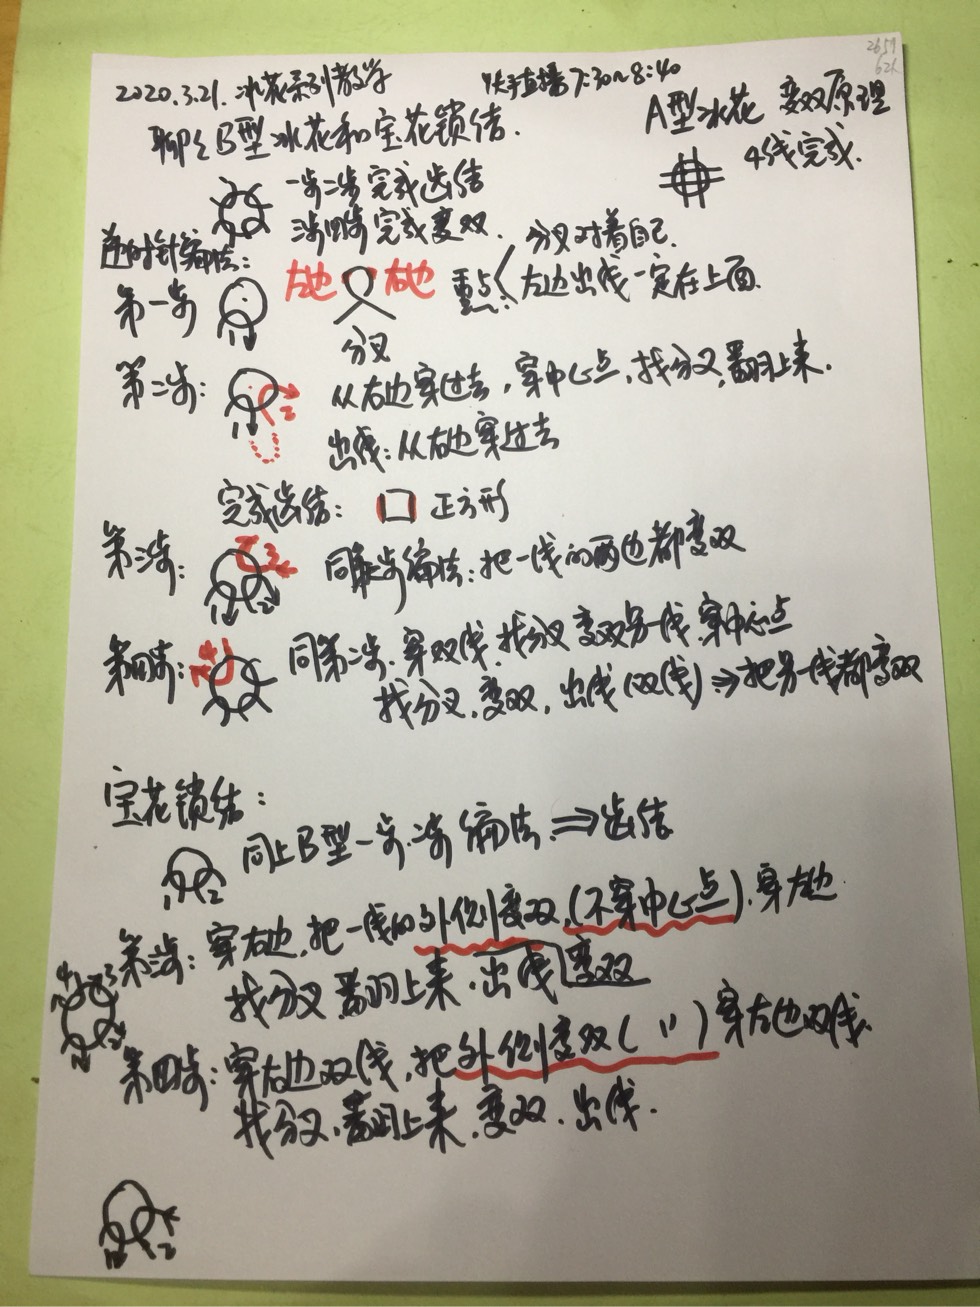 2659
621
2020.3.21.冰花系列教学 快手直播7:30~8:40
聊聊B型冰花和宝花锁结.
A型冰花 变双原理
4线完成.
一步二步完成齿结
三步四步完成变双.
逆时针编法:
分叉对着自己.
第一步 左边 右边 重点: 左边出线一定在上面.
1
分叉
第二步: 从右边穿过去,穿中心点,找分叉,翻上来.
1 2
出线:从右边穿过去
完成齿结: 正方形
第三步: 同第二步编法:把一线的两边都变双
1 2 3
第四步: 同第二步.穿双线,找分叉变双另一线.穿中心点
4
找分叉,变双,出线(双线)⇒把另一线都变双
宝花锁结:
同上B型一步.二步编法.⇒齿结
1 2
第三步: 穿右边,把一线的外侧变双,(不穿中心点).穿左边
找分叉翻上来.出线 变双
4 3 1 2
第四步: 穿右边双线,把外侧变双( 〃 )穿左边双线.
找分叉.翻上来.变双.出线.
1 2